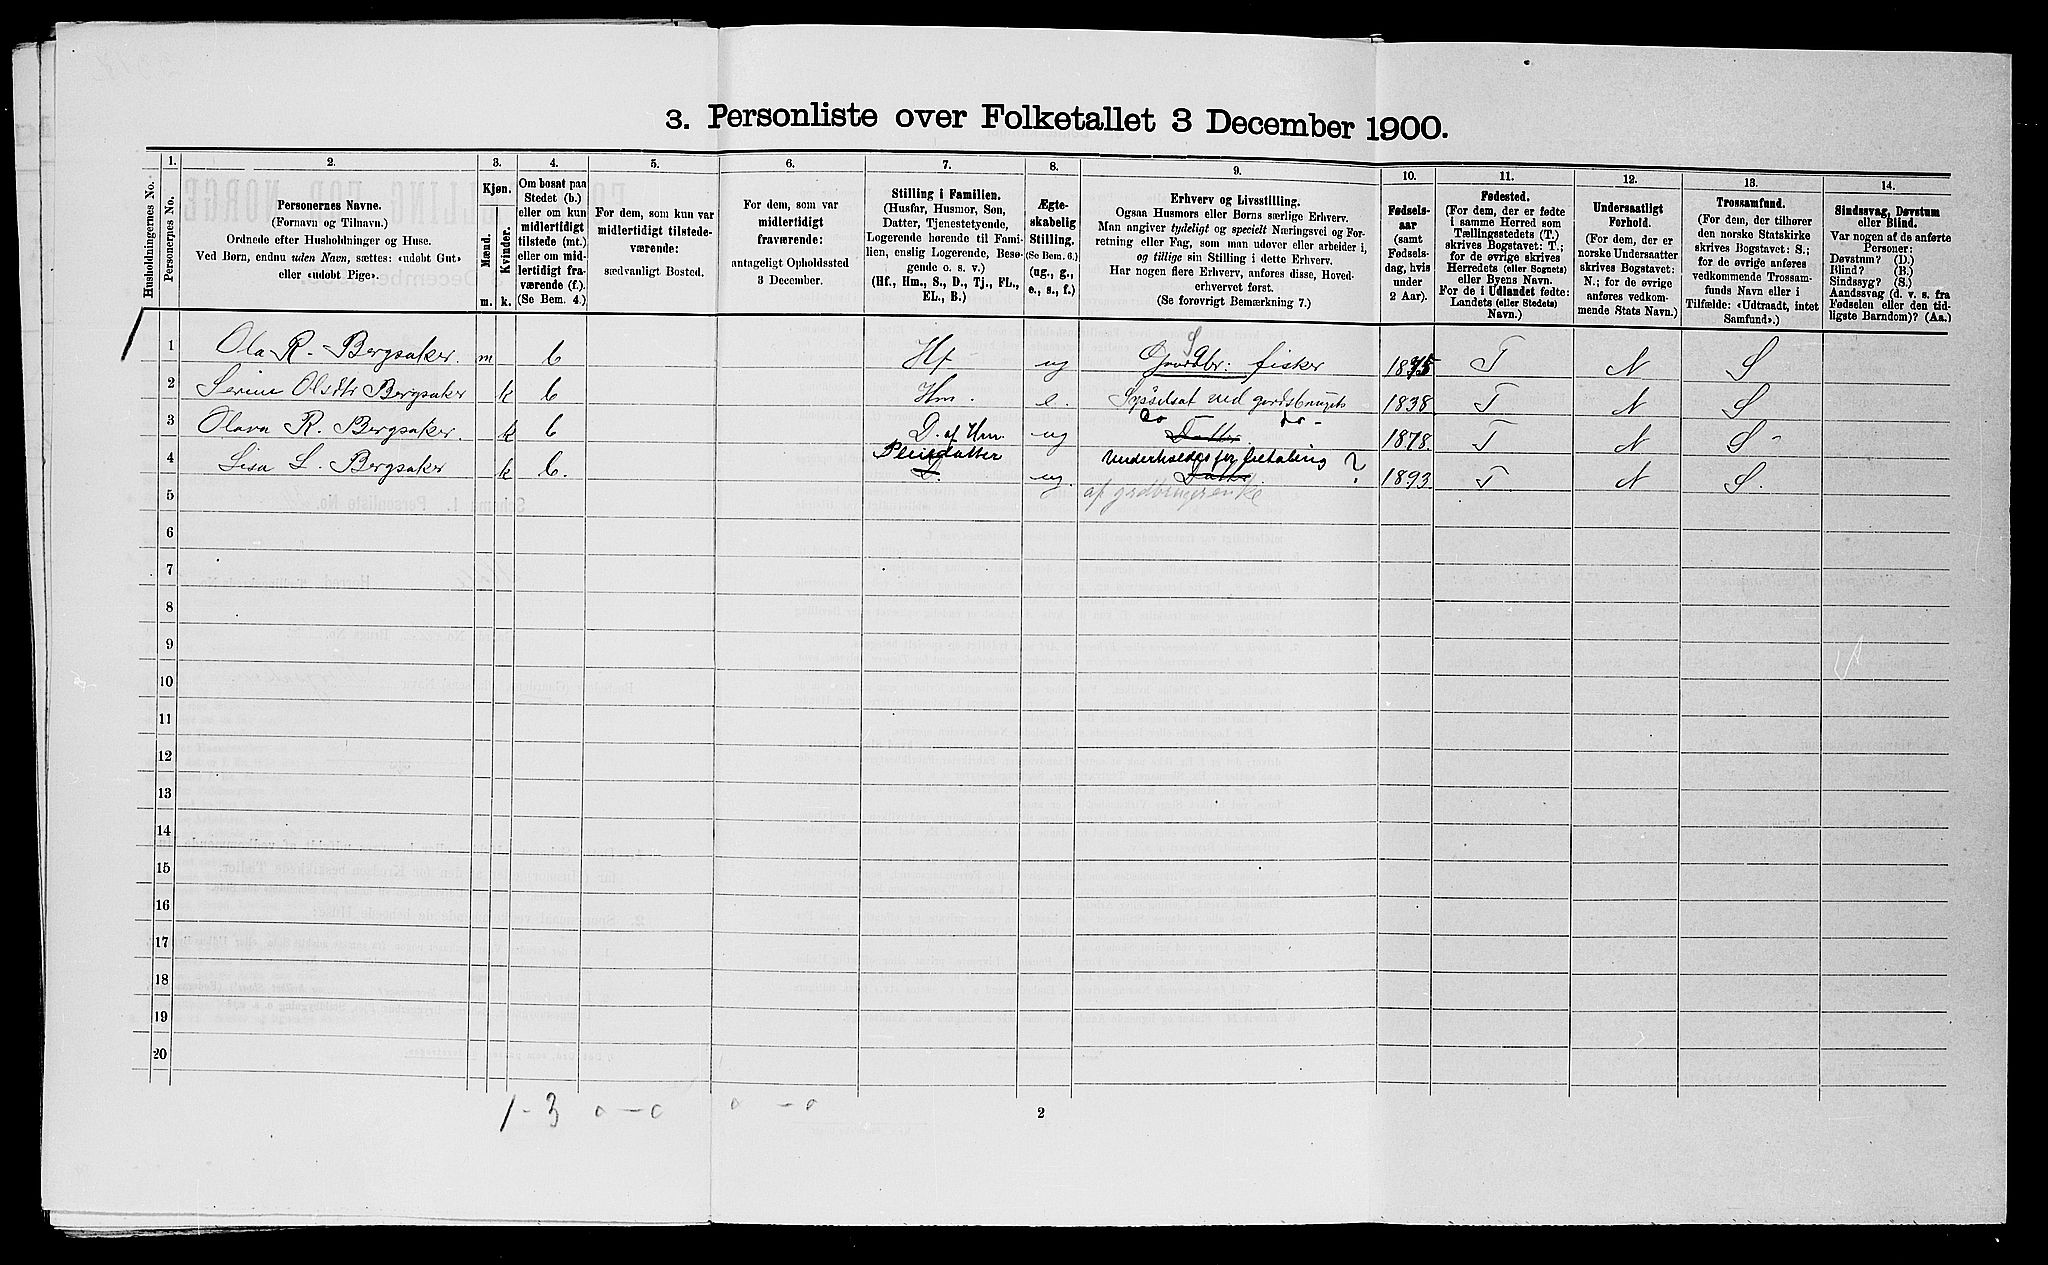 3. Personliste over Folketallet 3 December 1900.
Husholdningernes No.
1.
Personernes No.
2.
Personernes Navne.
(Fornavn og Tilnavn.)
Ordnede efter Husholdninger og Huse.
Ved Børn, endnu uden Navn, sættes: «udøbt Gut»
eller «udøbt Pige».
3.
Kjøn.
Mænd.
Kvinder.
m.
k.
4.
Om bosat paa
Stedet (b.)
eller om kun
midlertidigt
tilstede (mt.)
eller om mid-
lertidigt fra-
værende (f.).
(Se Bem. 4.)
5.
For dem, som kun var
midlertidigt tilstede-
værende:
sædvanligt Bosted.
6.
For dem, som var
midlertidigt
fraværende:
antageligt Opholdssted
3 December.
7.
Stilling i Familien.
(Husfar, Husmor, Søn,
Datter, Tjenestetyende,
Logerende hørende til Fami-
lien, enslig Logerende, Besø-
gende o. s. v.)
(Hf., Hm., S., D., Tj., FL.,
EL., B.)
8.
Ægte-
skabelig
Stilling.
(Se Bem. 6.)
(ug., g.,
e., s., f.)
9.
Erhverv og Livsstilling.
Ogsaa Husmors eller Børns særlige Erhverv.
Man angiver tydeligt og specielt Næringsvei og For-
retning eller Fag, som man udøver eller arbeider i,
og tillige sin Stilling i dette Erhverv.
Har nogen flere Erhverv, anføres disse, Hoved-
erhvervet først.
(Se forøvrigt Bemærkning 7.)
10.
Fødsels-
aar
(samt
Fødsels-
dag, hvis
under
2 Aar).
11.
Fødested.
(For dem, der er fødte
i samme Herred som
Tællingsstedets (T.)
skrives Bogstavet: T.;
for de øvrige skrives
Herredets (eller Sognets)
eller Byens Navn.
For de i Udlandet fødte:
Landets (eller Stedets)
Navn.)
12.
Undersaatligt
Forhold.
(For dem, der er
norske Undersaatter
skrives Bogstavet:
N.; for de øvrige
anføres vedkom-
mende Stats Navn.)
13.
Trossamfund.
(For dem, der tilhører
den norske Statskirke
skrives Bogstavet: S.;
for de øvrige anføres
vedkommende Trossam-
funds Navn eller i
Tilfælde: «Udtraadt, intet
Samfund».)
14.
Sindssvag, Døvstum
eller Blind.
Var nogen af de anførte
Personer:
Døvstum? (D.)
Blind? (B.)
Sindssyg? (S.)
Aandssvag (d. v. s. fra
Fødselen eller den tid-
ligste Barndom)? (Aa.)
1 Ola R. Bergsaker. m b Hf ug S Gaardbr: fisker 1875 T N S
2 Serine Olsdtr Bergsaker k b Hm. e. Sysselsat ved gardsbruget 1838 T N S
3 Olava R. Bergsaker. k b D. af Hm. ug do do Datter. 1878. T N S
4 Lisa L. Bergsaker k b. Pleiedatter D. ug. Underholdes for betaling ? Datter. 1893. T N S.
af grdbrugerenke
5
6
7
8
9
10
11
12
13
14
15
16
17
18
19
20
1-3 0-0 0-0
2